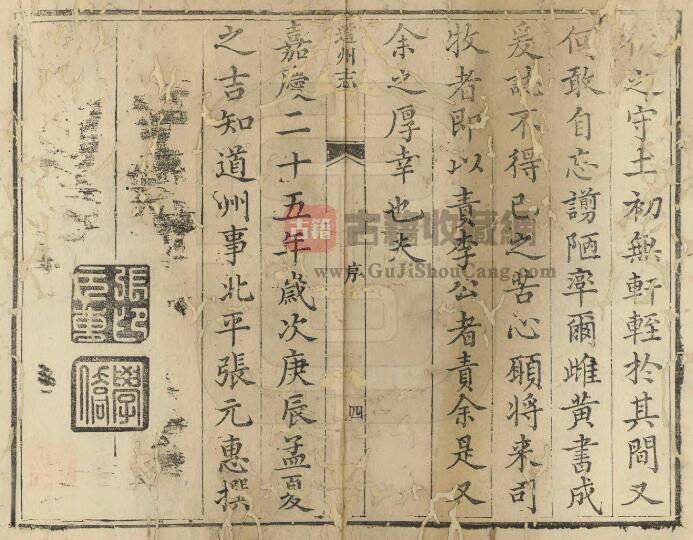 之守土初無軒輊於其間又
何敢自忘謭陋率爾雌黃書成
爰誌不得已之苦心願將来司
牧者即以責李公者責余是又
余之厚幸也夫
道州志
序
四
嘉慶二十五年歲次庚辰孟夏
之吉知道州事北平張元惠撰
古籍
古籍收藏網
www.GuJiShouCang.com